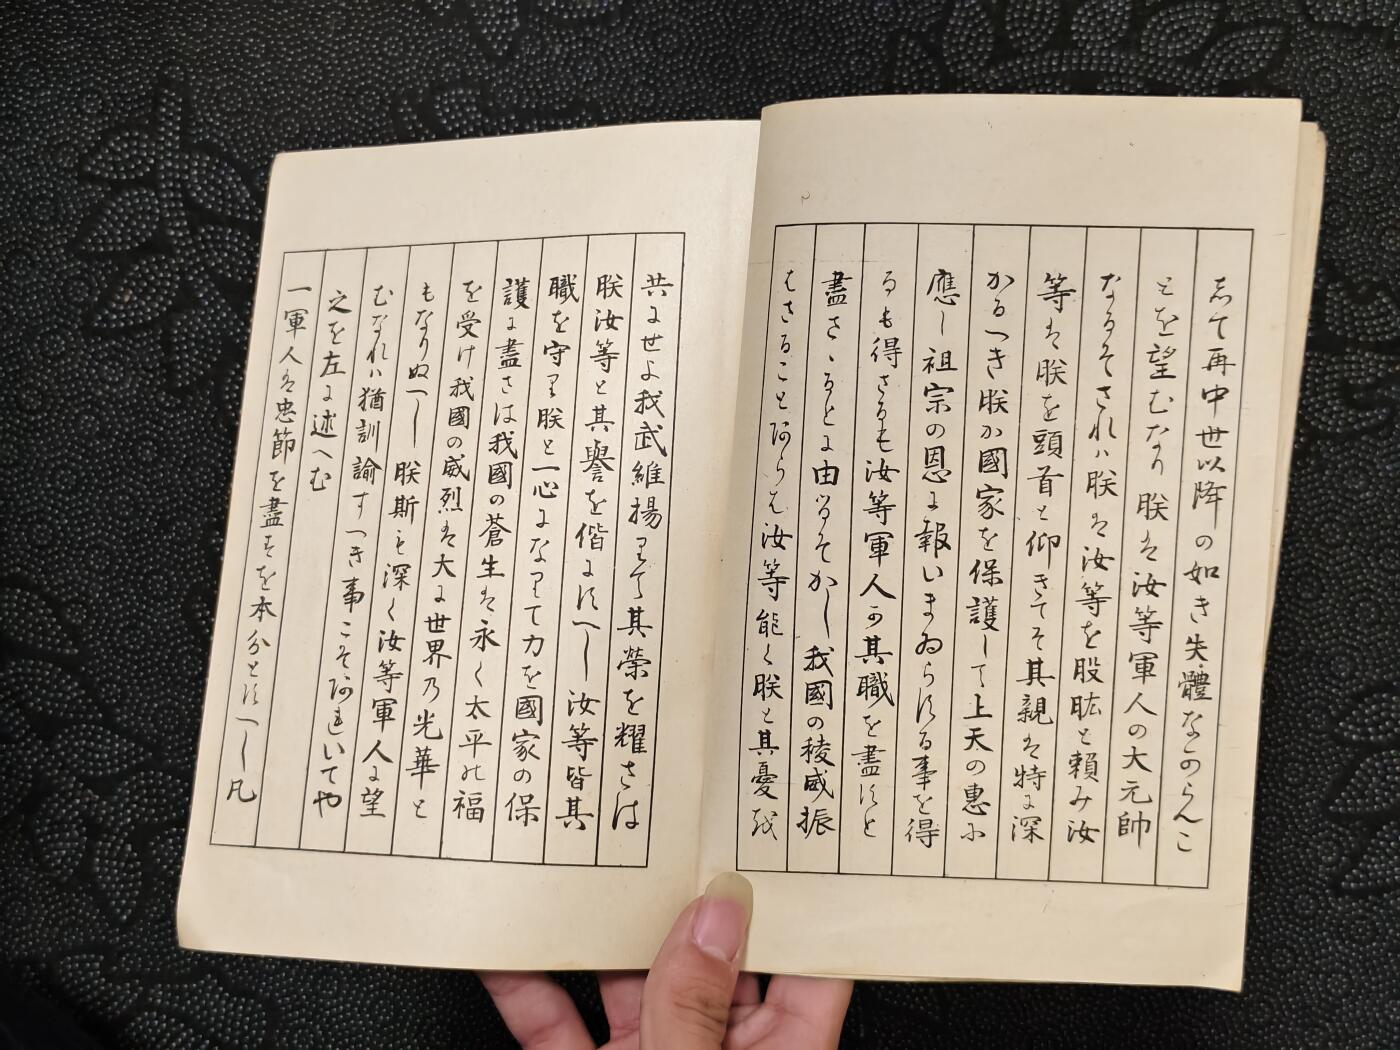 して再中世以降の如き失體なからんこ
とを望むなり朕は汝等軍人の大元帥
なるそされハ朕は汝等を股肱と頼み汝
等は朕を頭首と仰きてそ其親は特に深
かるへき朕か國家を保護して上天の惠に
應し祖宗の恩に報いまゐらする事を得
るも得さるも汝等軍人か其職を盡すと
盡さゝるとに由るそかし我國の稜威振
はさることあらは汝等能く朕と其憂を
共にせよ我武維揚りて其榮を耀さは
朕汝等と其譽を偕にすへし汝等皆其
職を守り朕と一心になりて力を國家の保
護に盡さは我國の蒼生は永く太平の福
を受け我國の威烈は大に世界の光華と
もなりぬへし朕斯も深く汝等軍人に望
むなれハ猶訓諭すへき事こそあれいてや
之を左に述へむ
一軍人は忠節を盡すを本分とすへし凡